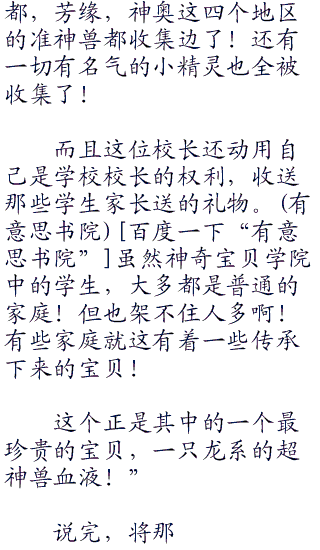 都，芳缘，神奥这四个地区
的准神兽都收集边了！还有
一切有名气的小精灵也全被
收集了！
而且这位校长还动用自
己是学校校长的权利，收送
那些学生家长送的礼物。(有
意思书院)[百度一下“有意
思书院”]虽然神奇宝贝学院
中的学生，大多都是普通的
家庭！但也架不住人多啊！
有些家庭就这有着一些传承
下来的宝贝！
这个正是其中的一个最
珍贵的宝贝，一只龙系的超
神兽血液！”
说完，将那